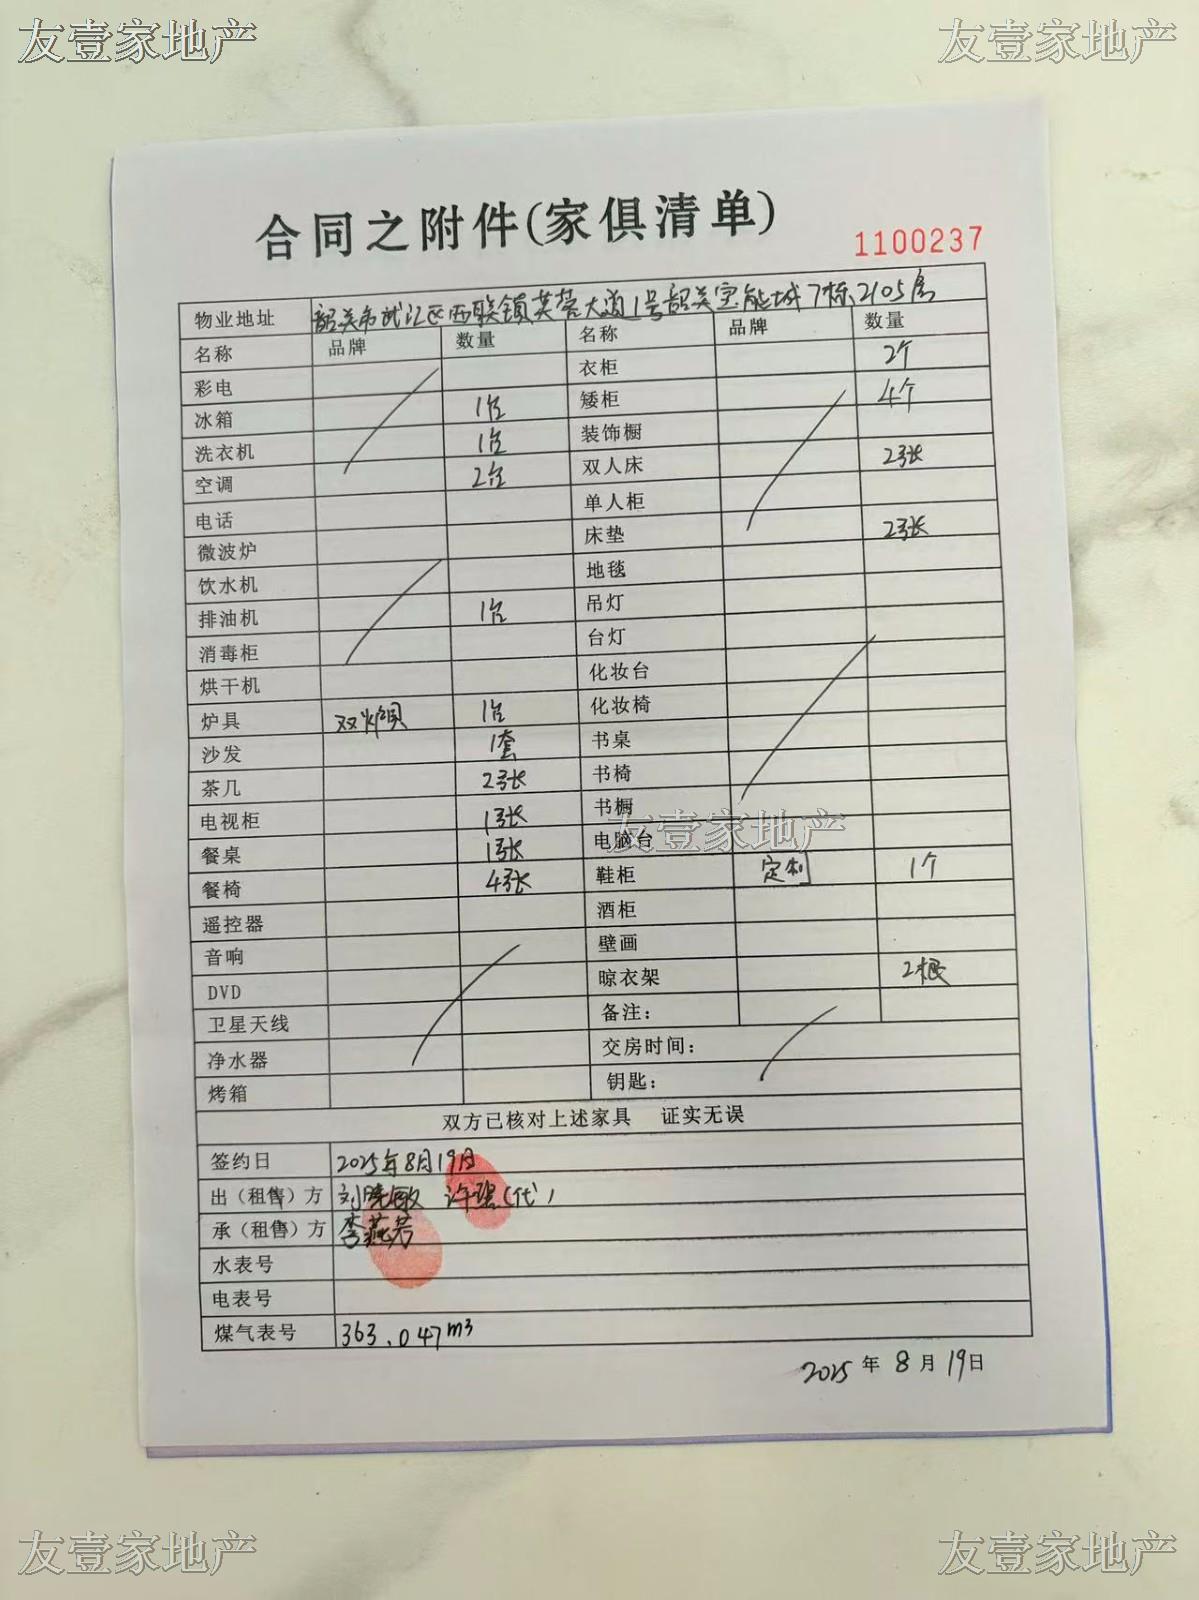 友壹家地产 友壹家地产
合同之附件(家俱清单)
1100237
物业地址 韶关市武江区西联镇芙蓉大道1号韶关宝能城7栋2105房
名称 品牌 数量 名称 品牌 数量
彩电 衣柜 2个
冰箱 1台 矮柜 4个
洗衣机 1台 装饰橱
空调 2台 双人床 2张
电话 单人柜
微波炉 床垫 2张
饮水机 地毯
排油机 1台 吊灯
消毒柜 台灯
烘干机 化妆台
炉具 双炉具 1台 化妆椅
沙发 1套 书桌
茶几 2张 书椅
电视柜 1张 书橱
友壹家地产
餐桌 1张 电脑台
餐椅 4张 鞋柜 定制 1个
遥控器 酒柜
音响 壁画
DVD 晾衣架 2根
卫星天线 备注：
净水器 交房时间：
烤箱 钥匙：
双方已核对上述家具 证实无误
签约日 2025年8月19日
出（租售）方 刘晓敏 许强(代)
承（租售）方 李燕芳
水表号
电表号
煤气表号 363.047m³
2025年8月19日
友壹家地产 友壹家地产